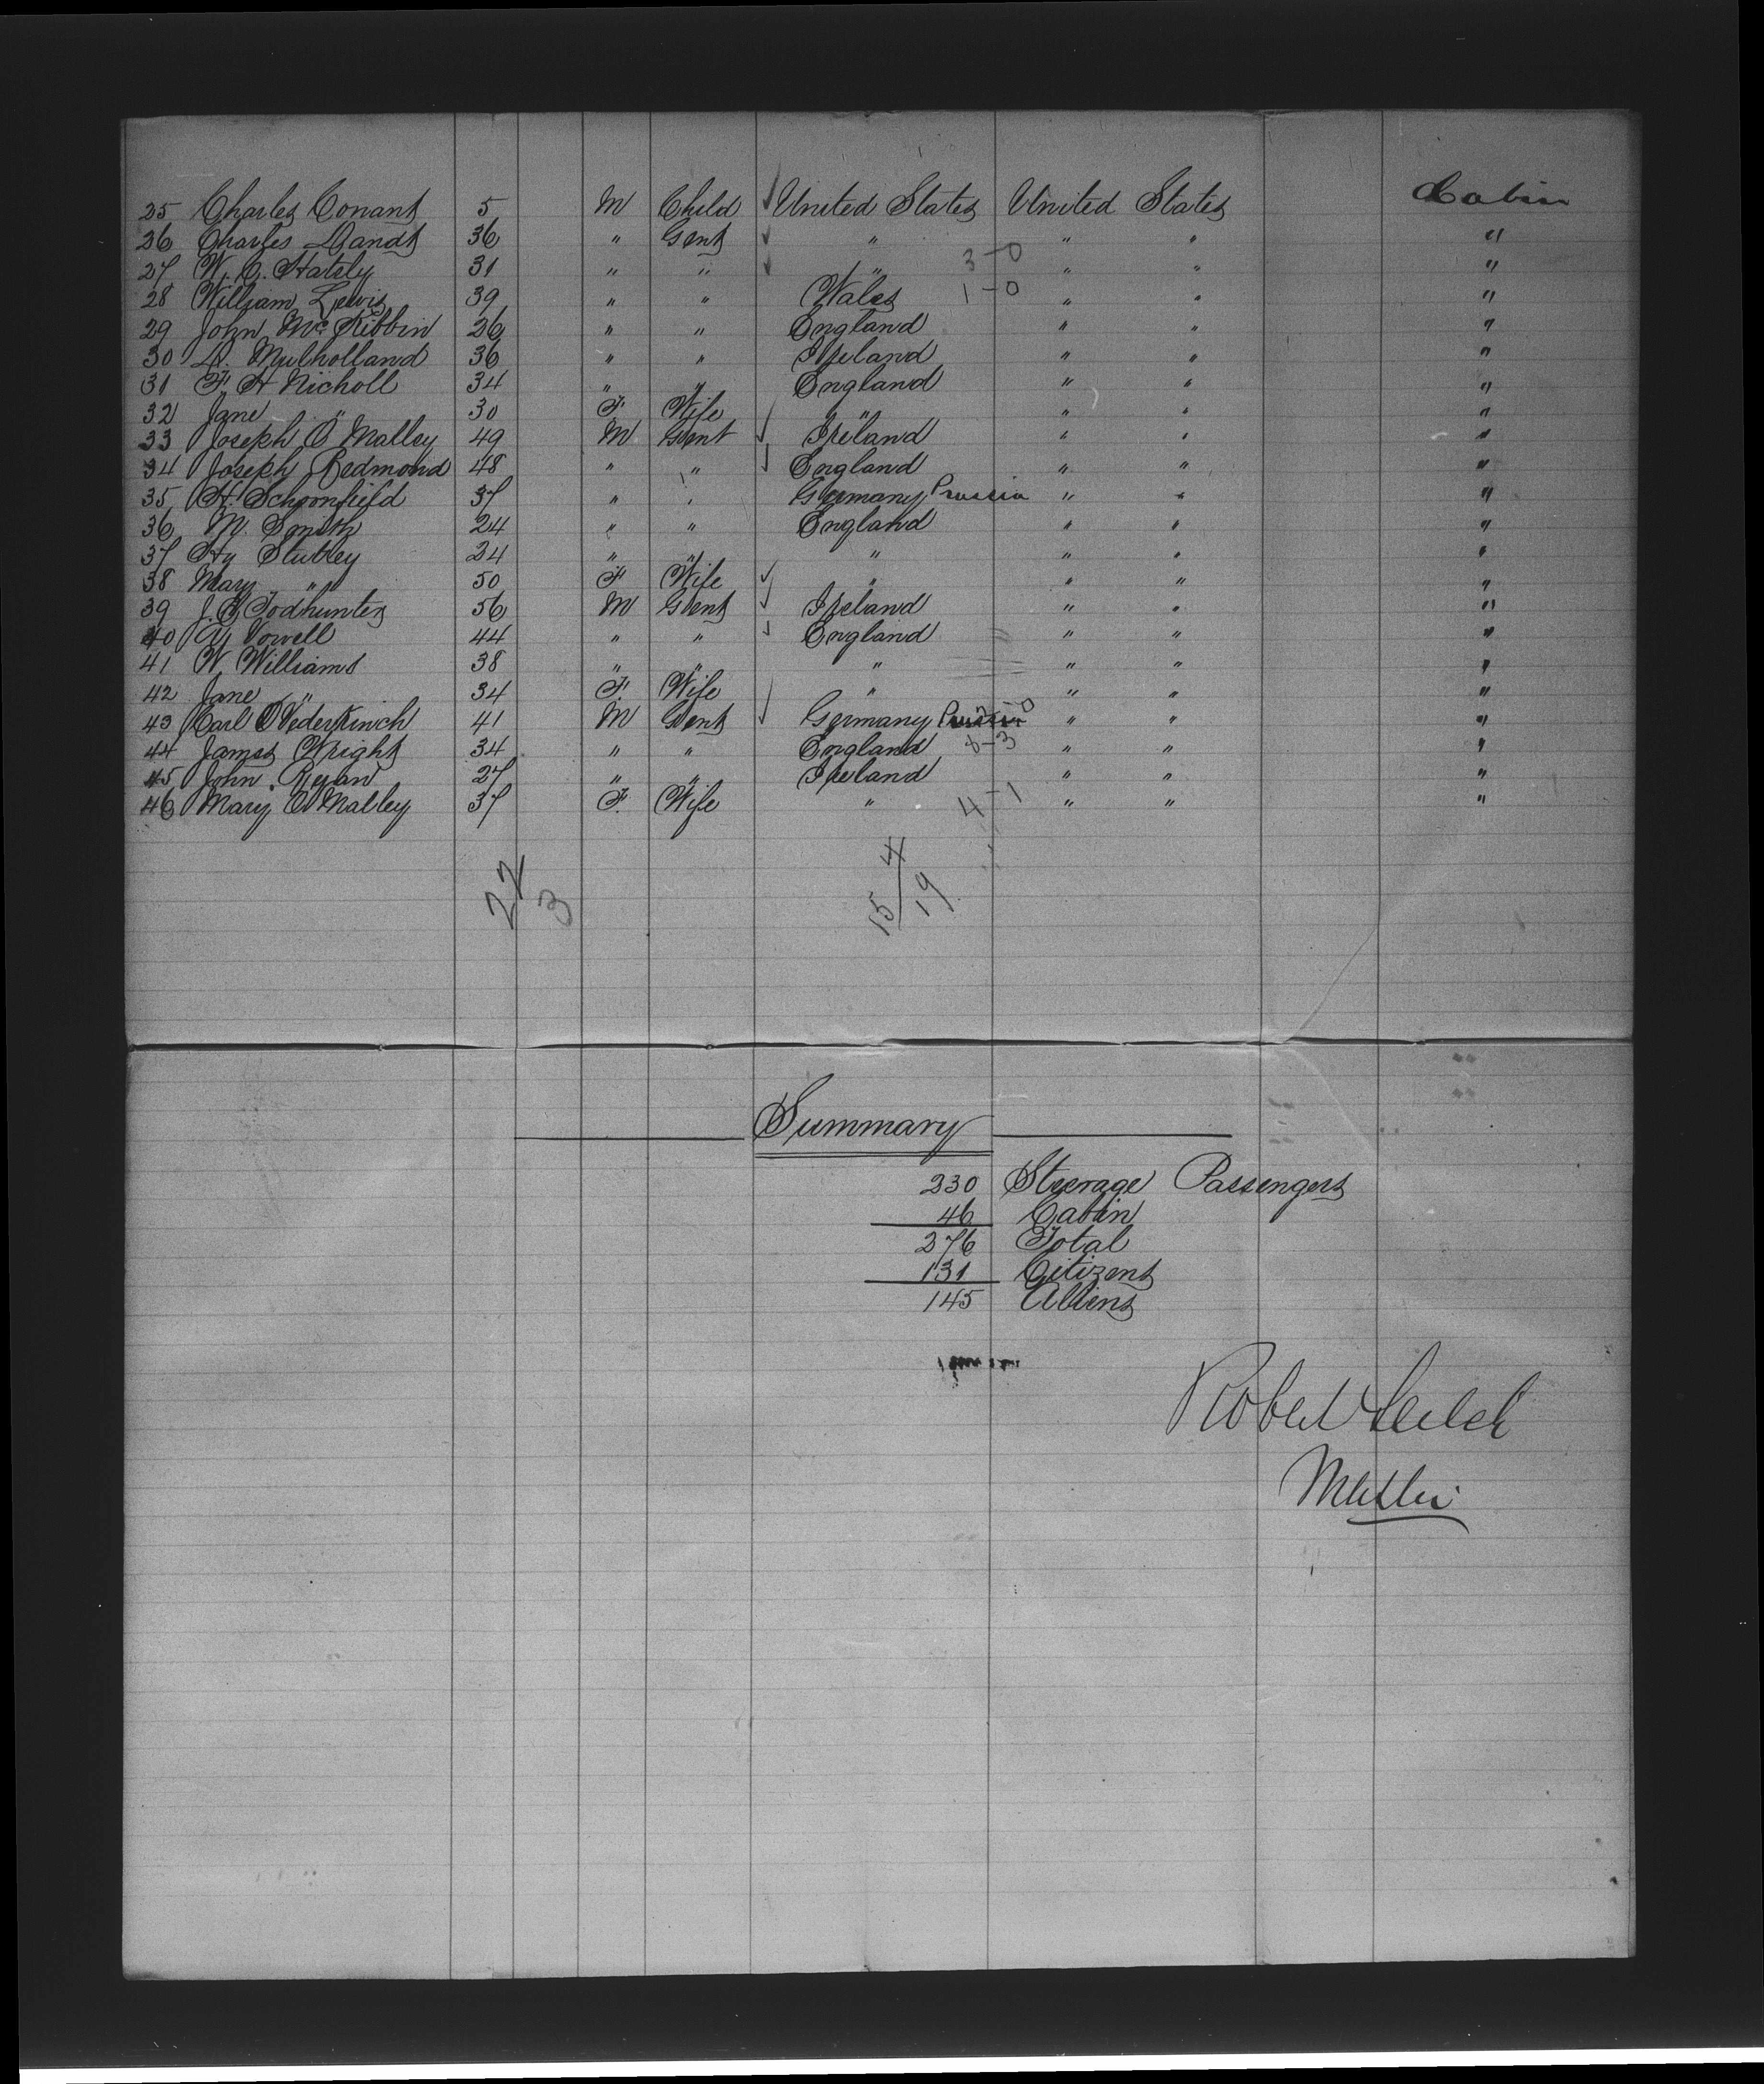 25 Charles Conant 5 M Child United States United States Cabin
26 Charles Dandt 36 " Gent " " " "
27 W. C. Hately 31 " " " " " "
3-0
28 William Lewis 39 " " Wales " " "
1-0
29 John McKibbin 26 " " England " " "
30 D. Mulholland 36 " " Ireland " " "
31 F. H Nicholl 34 " " England " " "
32 Jane " 30 F. Wife " " " "
33 Joseph O Malley 49 M Gent Ireland " " "
34 Joseph Redmond 48 " " England " " "
35 H. Schoonfield 37 " " Germany Prussia " " "
36 M. Smith 24 " " England " " "
37 Hy Stubley 24 " " " " " "
38 Mary " 50 F Wife " " " "
39 J. Todhunter 56 M Gent Ireland " " "
40 Vowell 44 " " England " " "
41 W. Williams 38 " " " " " "
42 Jane " 34 F. Wife " " " "
43 Carl 41 M Gent Germany Prussia " " "
44 James Wright 34 " " England " " "
8-3
45 John Ryan 27 " " Ireland " " "
46 Mary O Malley 37 F. Wife " " " "
4-1
22 3
15 4 19
Summary
230 Steerage Passengers
46 Cabin
276 Total
131 Citizens
145 Aliens
Robert Leitch
Master